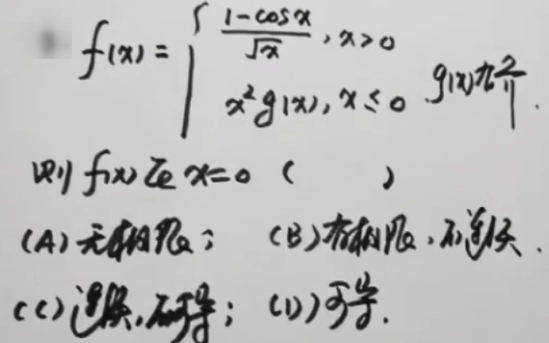 f(x) = { (1-cosx)/√x , x>0
x²g(x), x≤0 g(x)有界.
则 f(x) 在 x=0 ( )
(A) 无极限; (B) 有极限,不连续.
(C) 连续,不可导; (D) 可导.